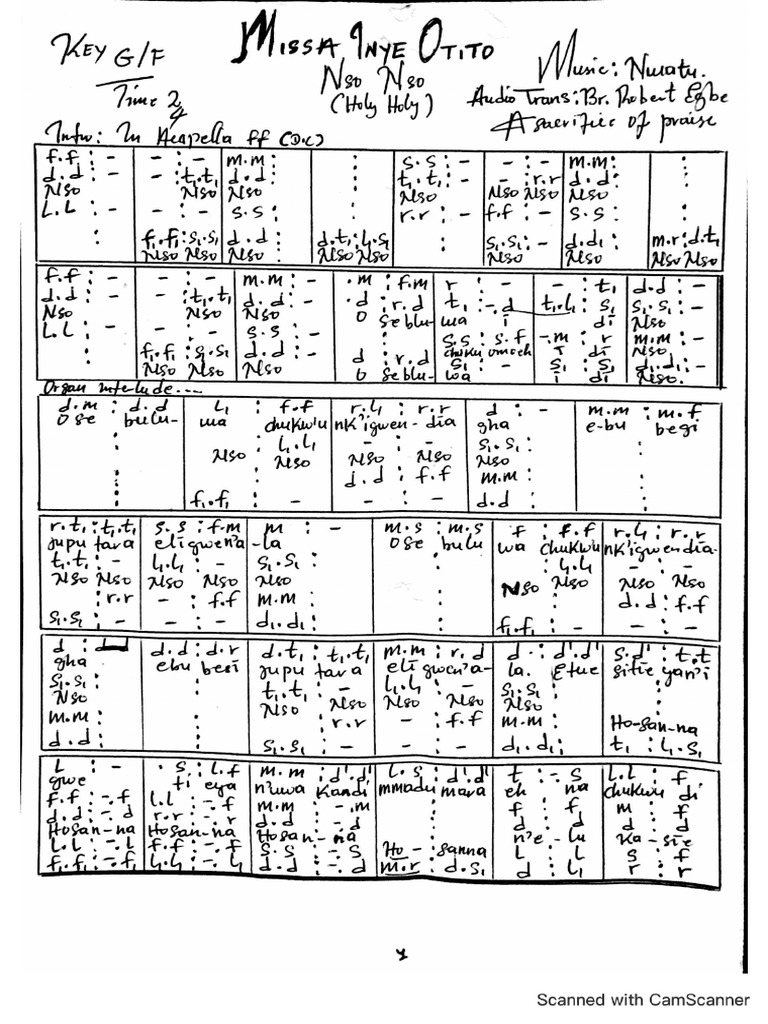 MISSA INYE OTITO
KEY G/F
Nso Nso
Music: Nwatu.
Time 2/4
(Holy Holy)
Audio Trans: Br. Robert Egbe
A sacrifice of praise
Intro: In Acapella ff (D.C)
f.f : - | - : - | m.m : | : | s.s : - | - : - | m.m : | :
d.d : - | - : t₁.t₁ | d.d : | : | t₁.t₁ : - | - : r.r | d.d : | :
Nso Nso Nso Nso Nso Nso Nso
L.L : - | - : - | s.s : | : | r.r : - | f.f : - | s.s : | :
: | f₁.f₁ : s₁.s₁ | d.d : | d.t₁ : l₁.s₁ | : | s₁.s₁ : - | d.d₁ : | m.r : d.t₁
Nso Nso Nso Nso Nso Nso Nso Nso Nso
f.f : - | - : - | m.m : - | .m : f.m | r : - | - : t₁ | d.d : -
d.d : - | - : t₁.t₁ | d.d : - | .d : r.d | t₁ : -.d | t₁.l₁ : s₁ | s₁.s₁ : -
Nso Nso Nso O Seblu- wa i di Nso
L.L : - | - : - | s.s : - | : | s.s : s.f | -.m : r | m.m : -
chuku omach i di Nso.
: | f₁.f₁ : s₁.s₁ | d.d : - | d : r.d | s₁ : - | s₁ : s₁ | d₁.d₁ : -
Nso Nso Nso O Seblu- wa i di Nso.
Organ interlude...
d.m : d.d | L₁ : f.f | r.l₁ : r.r | d : - | m.m : m.f
Ose bulu- wa chukwu nk'igwen-dia gha e-bu begi
: | : l₁.l₁ | - : - | s₁.s₁ : | :
Nso Nso Nso Nso Nso
: | : | d.d : f.f | m.m : | :
: | f₁.f₁ : - | - : - | d.d : | :
r.t₁ : t₁.t₁ | s.s : f.m | m : - | m.s : m.s | f : f.f | r.l₁ : r.r
jupu tara eligwen'a -la Ose bulu wa chukwu nk'igwendia-
t₁.t₁ : - | l₁.l₁ : - | s₁.s₁ : | : | : l₁.l₁ | - : -
Nso Nso Nso Nso Nso Nso Nso Nso Nso
: r.r | - : f.f | m.m : | : | : | d.d : f.f
s₁.s₁ : - | - : - | d₁.d₁ : | : | f₁.f₁ : - | - : -
d : | d.d : d.r | d.t₁ : t₁.t₁ | m.m : r.d | d. : d'.d' | s.d' : t.t
gha ebu begi jupu tara eli gwen'a- la. Etue sitie yan'i
s₁.s₁ : | : | t₁.t₁ : - | l₁.l₁ : - | s₁.s₁ : | :
Nso Nso Nso Nso Nso Nso
m.m : | : | : r.r | - : f.f | m.m : | Ho-san-na
d.d : | : | s₁.s₁ : - | - : - | d₁.d₁ : | t₁ : l₁.s₁
L : - | . s : l.f | m.m : d'.d' | l.s : d'.d' | t : -.s | l.l : f
gwe ti eya n'uwa Kandi mmadu mara eh na chukwu di
f.f : -.f | l.l : -.f | m.m : -.m | : | f : f | m : f
d.d : -.d | r.r : -.r | d.d : -.d | : | d : d | d : d
Hosan-na Hosan-na Hosan-na Ho-sanna n'e-lu Ka-sie
L.L : -.L | f.f : -.f | s.s : -.s | : | L : L | s : f
f₁.f₁ : -.f₁ | l₁.l₁ : -.l₁ | d.d : -.d | m.r : d.s₁ | d : l₁ | r : r
Scanned with CamScanner